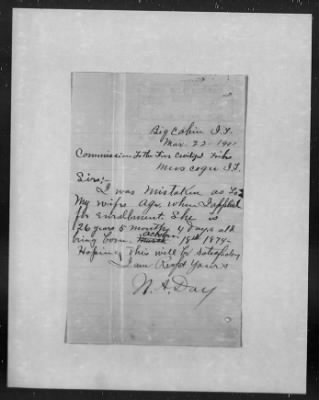 Big Cabin I.T.
Mar. 22 - 1901
Commission To the Five Civilized Tribes
Muscogee I.T.
Sirs:-
I was mistaken as To
My wifes Age. when I applied
for enrollment. She is
26 years 5 months 4 days old
being born October 18th 1874-
Hoping This will be satisfactory
I am Resptf Yours
W. A. Day